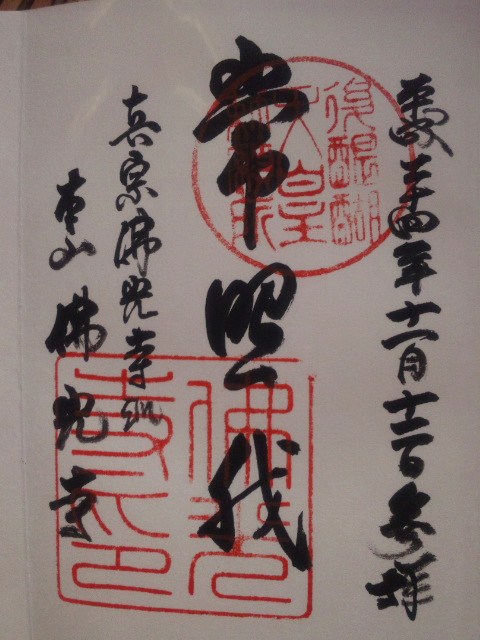 平成二十四年十一月十二日 参拝
後醍醐
天皇
常照我
佛光
寺印
真宗佛光寺派
本山 佛光寺